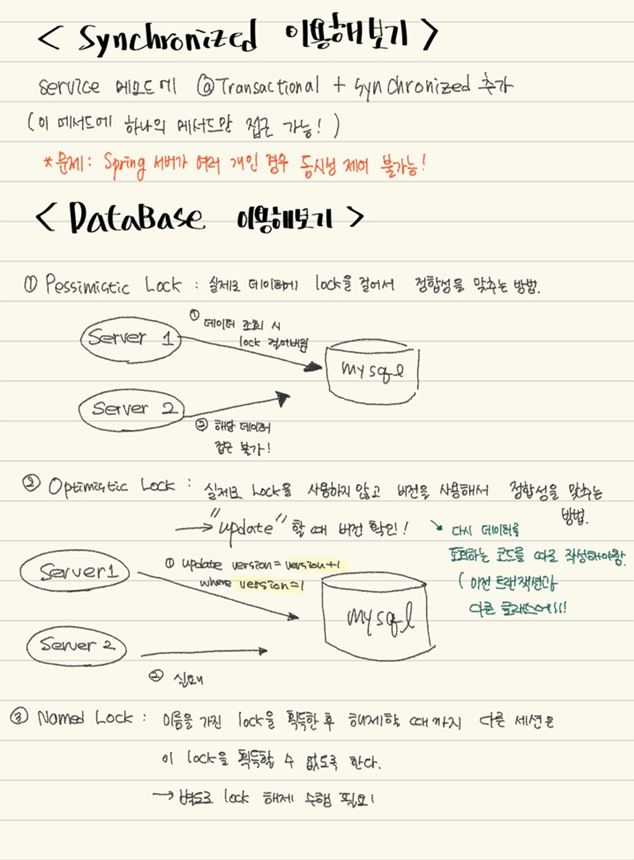 < Synchronized 이용해보기 >
service 메소드에 @Transactional + Synchronized 추가
(이 메서드에 하나의 메서드만 접근 가능!)
*문제: Spring 서버가 여러 개인 경우 동시성 제어 불가능!
< DataBase 이용해보기 >
① Pessimistic Lock : 실제로 데이터에 lock을 걸어서 정합성을 맞추는 방법.
Server 1
① 데이터 조회 시
lock 걸어버림
mysql
Server 2
② 해당 데이터
접근 불가!
② Optimistic Lock : 실제로 Lock을 사용하지 않고 버전을 사용해서 정합성을 맞추는
방법.
→ "update" 할 때 버전 확인!
↘ 다시 데이터를
코드를 따로 작성해야함.
(이전 트랜잭션과
다른 클래스에서!
Server1
① update version = version+1
where version=1
mysql
Server 2
② 실패
③ Named Lock : 이름을 가진 lock을 획득한 후 해제할 때까지 다른 세션은
이 lock을 획득할 수 없도록 한다.
→ 별도로 lock 해제 수행 필요!